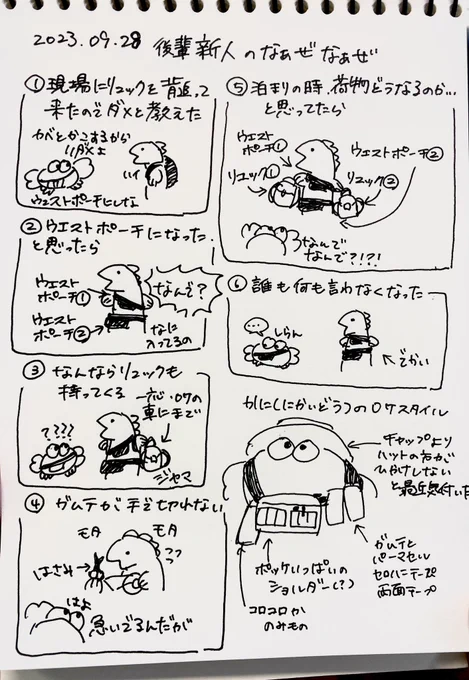 2023.09.28
後輩新人のなぁぜなぁぜ
① 現場にリュックを背追って
来たのでダメと教えた
カベとかこするから
ダメよ
ハイ
ウエストポーチにしな
② ウエストポーチになった
と思ったら
ウエスト
ポーチ①
ウエスト
ポーチ②
なんで?
なに
入ってるの
③ なんならリュックも
持ってくる
????
車にまで
ジャマ
④ ガムテが手で切れない
モタ
モタ
はさみ
はよ
急いでるんだが
⑤ 泊まりの時、荷物どうなるのか…
と思ってたら
ウエスト
ポーチ①
リュック①
ウエストポーチ②
リュック②
なんで
なんで?!?!
⑥ 誰も何も言わなくなった
…
しらん
でかい
かに(にかいどう)のロケスタイル
キャップより
ハットの方が
ひやけしない
と最近気付いた
ポッケいっぱいの
ショルダー(?)
コロコロか
のみもの
ガムテと
パーマセル
セロハンテープ
両面テープ